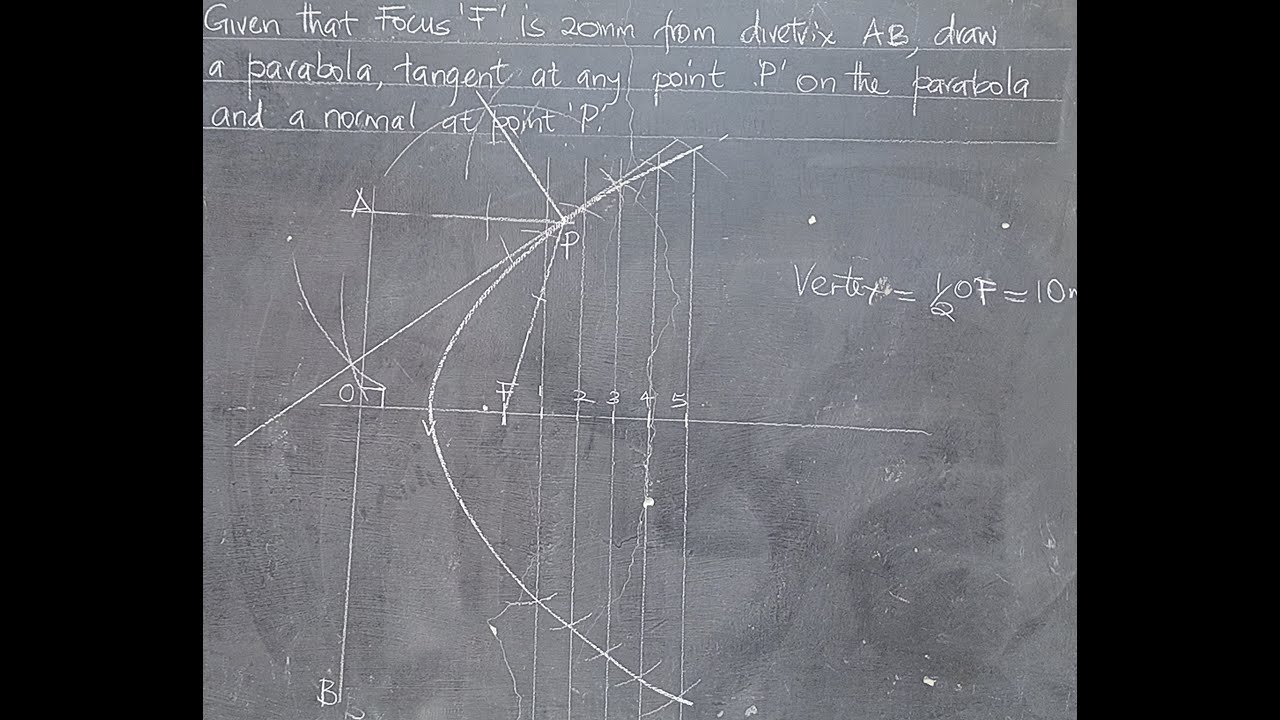 Given that Focus 'F' is 20mm from divetvix AB, draw
a parabola, tangent at any point 'P' on the parabola
and a normal at point 'P'.
A
P
Vertex = 1/2 OF = 10m
O F 1 2 3 4 5
V
B